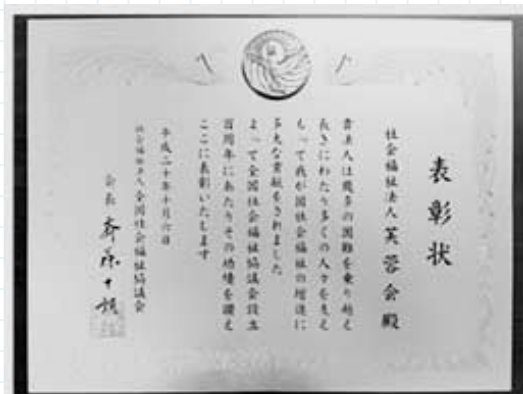 表彰状
社会福祉法人芙蓉会殿
貴法人は幾多の困難を乗り越え
長きにわたり多くの人々を支え
もって我が国社会福祉の増進に
多大な貢献をされました
よって全国社会福祉協議会設立
百周年にあたりその功績を讃え
ここに表彰いたします
平成二十年十月六日
社会福祉法人全国社会福祉協議会
会長 斎藤十朗